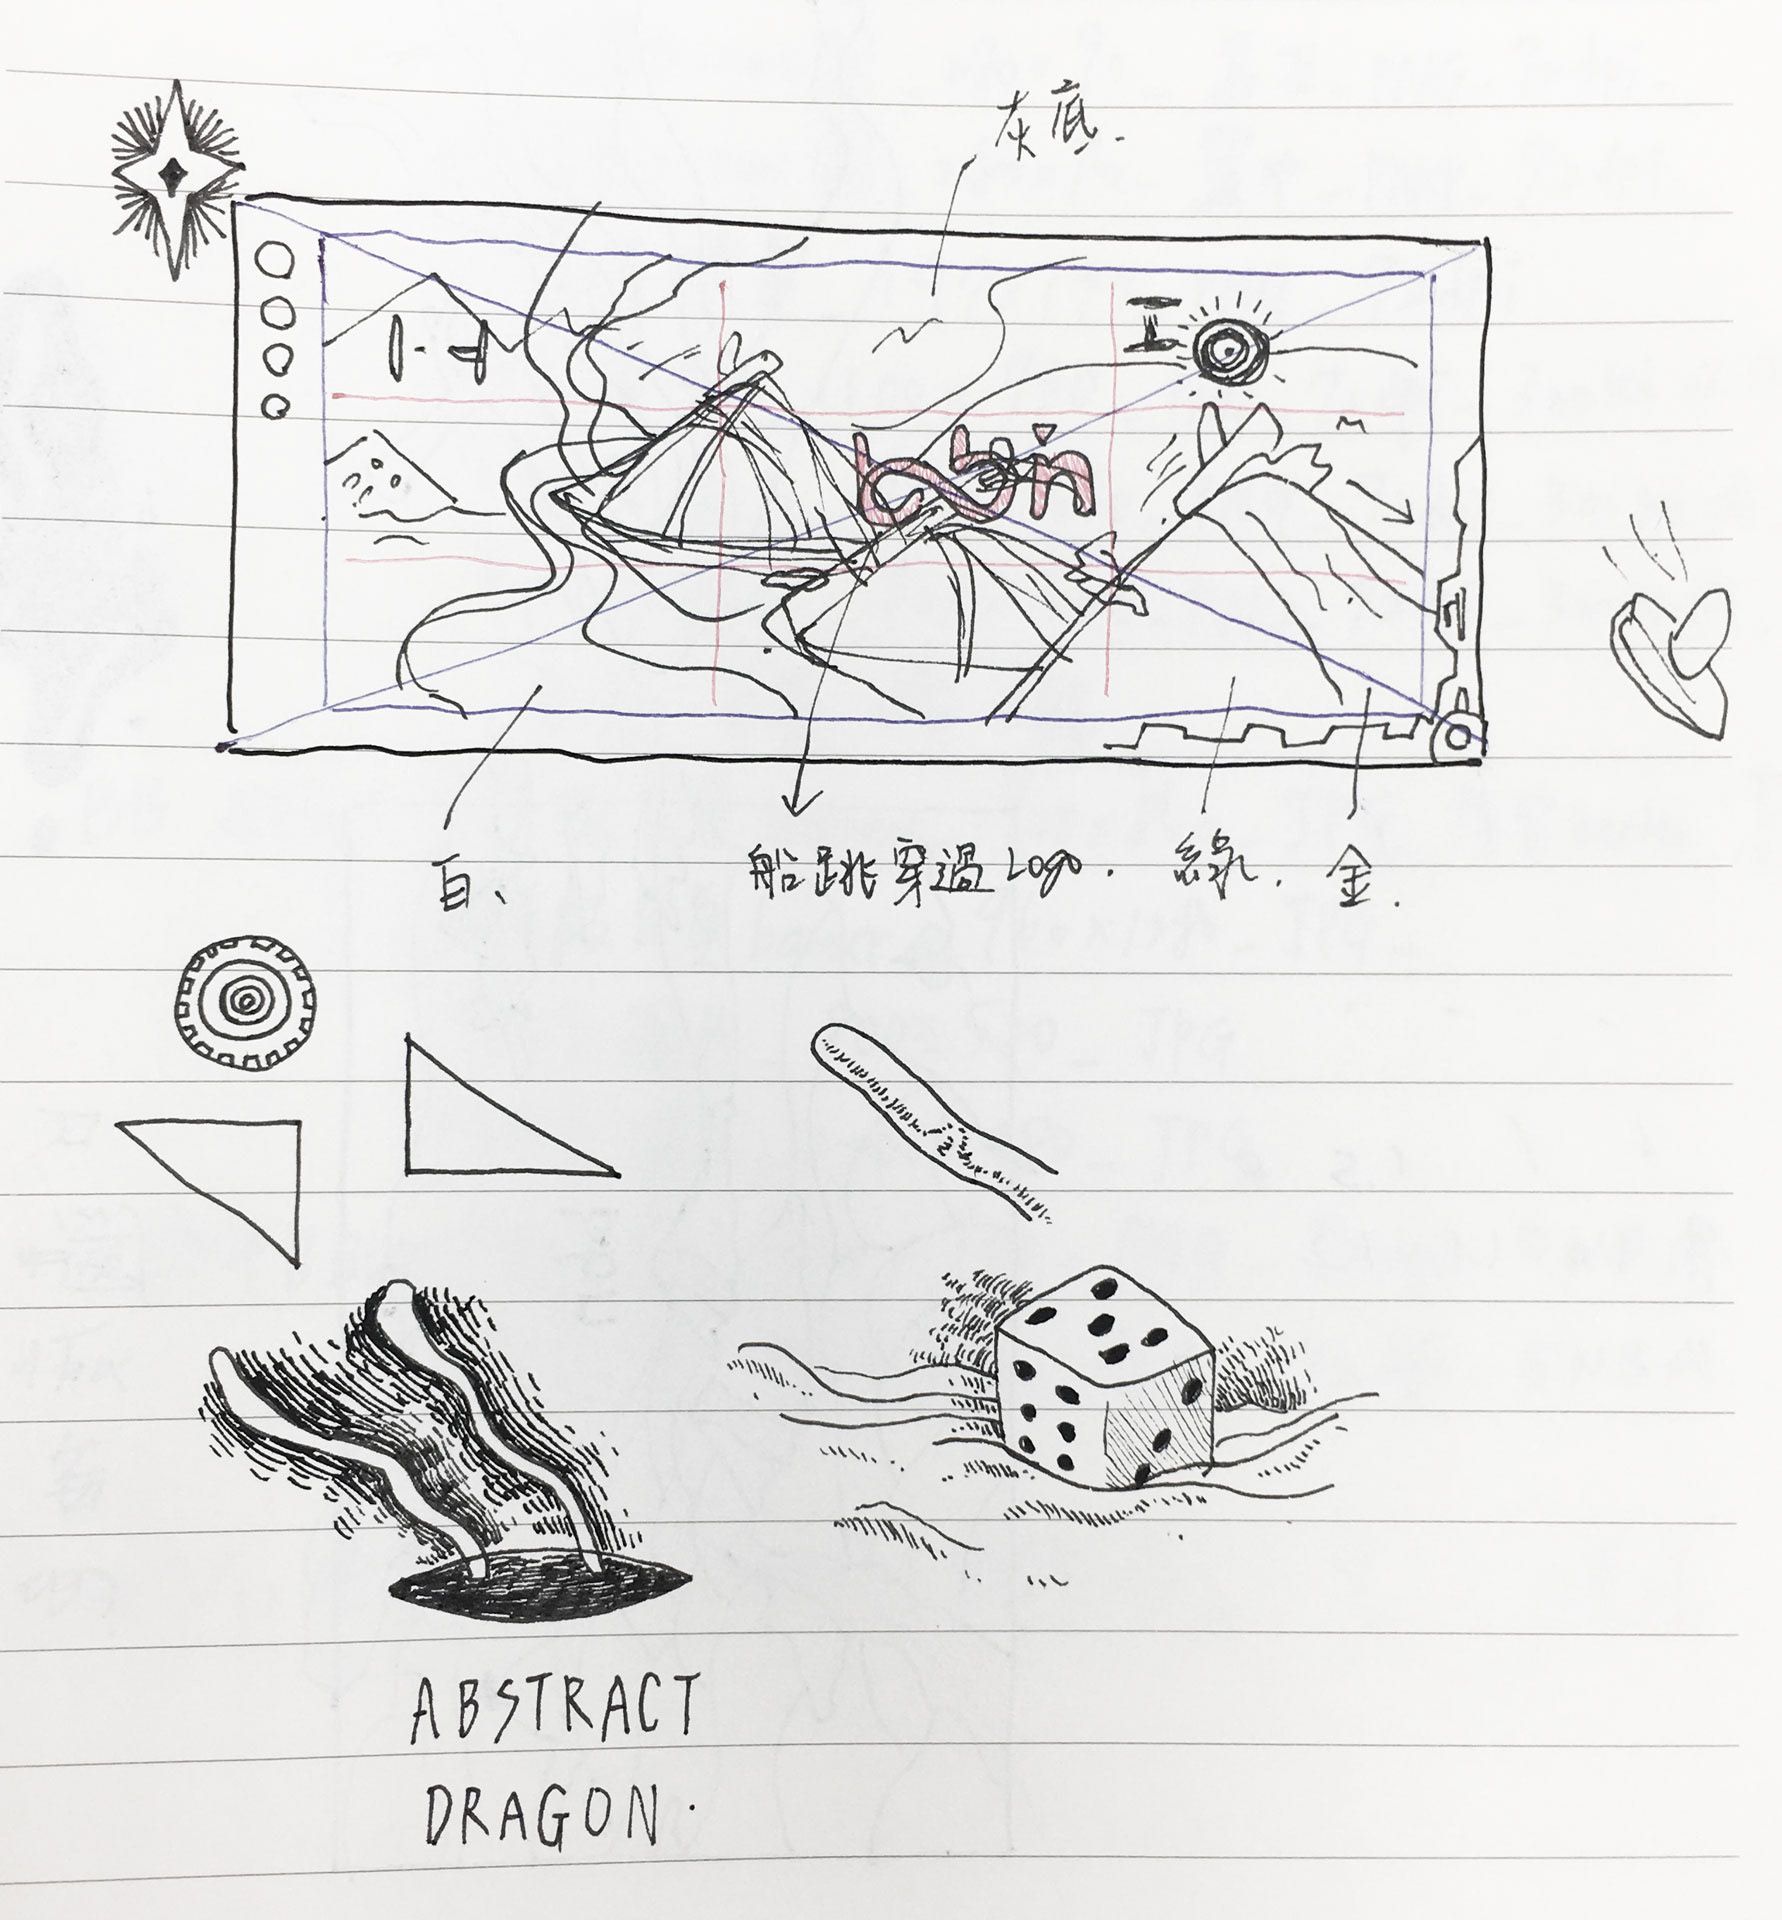 灰底.
白、
船跳穿過Logo. 綠. 金.
ABSTRACT
DRAGON.